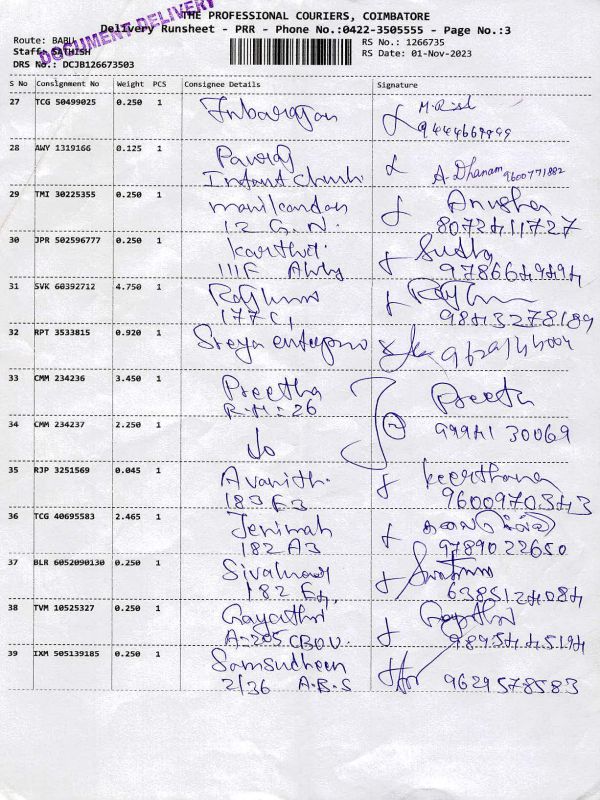 THE PROFESSIONAL COURIERS, COIMBATORE
Delivery Runsheet - PRR - Phone No.:0422-3505555 - Page No.:3
DOCUMENT DELIVERY
Route: BABU
Staff: SATHISH
DRS No.: DCJB126673503
RS No.: 1266735
RS Date: 01-Nov-2023
S No Consignment No Weight PCS Consignee Details Signature
27 TCG 50499025 0.250 1 Inbarajan
28 AWY 1319166 0.125 1
A. Dhanam 9600771882
29 TMI 30225355 0.250 1 Manikandan Anusha
12 G.N. 8072411727
30 JPR 502596777 0.250 1 Karthi Sudha
111F
31 SVK 60392712 4.750 1
177 C, 9843278189
32 RPT 3533815 0.920 1 Sreya enterprise
33 CMM 234236 3.450 1 Preetha Preeta
R.H-26
34 CMM 234237 2.250 1 99941 30069
35 RJP 3251569 0.045 1 Avanith Keerthana
183 E3 9600970543
36 TCG 40695583 2.465 1 Jenimah
182 A3 9789022650
37 BLR 6052090130 0.250 1
182 E4, 6385124084
38 TVM 10525327 0.250 1 Gayathri Gayathri
A-205 CBOU. 9894544519
39 IXM 505139185 0.250 1 Samsudheen
2/36 A.B.S 9629578583